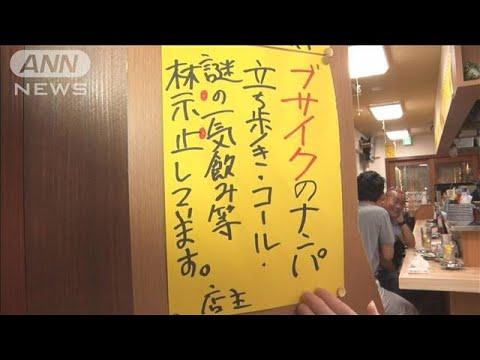 ANN
NEWS
ブサイクのナンパ
立ち歩き・コール・
謎の一気飲み等
禁止しています。
店主